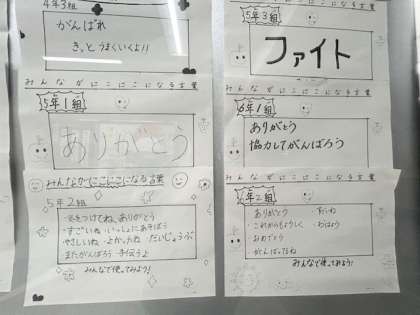 4年3組
がんばれ
きっとうまくいくよ!!
みんながにこにこになる言葉
5年1組
ありがとう
みんながにこにこになる言葉
5年2組
気をつけてね、ありがとう
すごいね いっしょにあそぼう
やさしいね よかったね だいじょうぶ
またがんばろう 手伝うよ
みんなで使ってみよう!
5年3組
ファイト
みんながにこにこになる言葉
6年1組
ありがとう
協力してがんばろう
みんながにこにこになる言葉
6年2組
ありがとう
これからもよろしく
おめでとう
がんばってるね
みんなで使ってみよう!